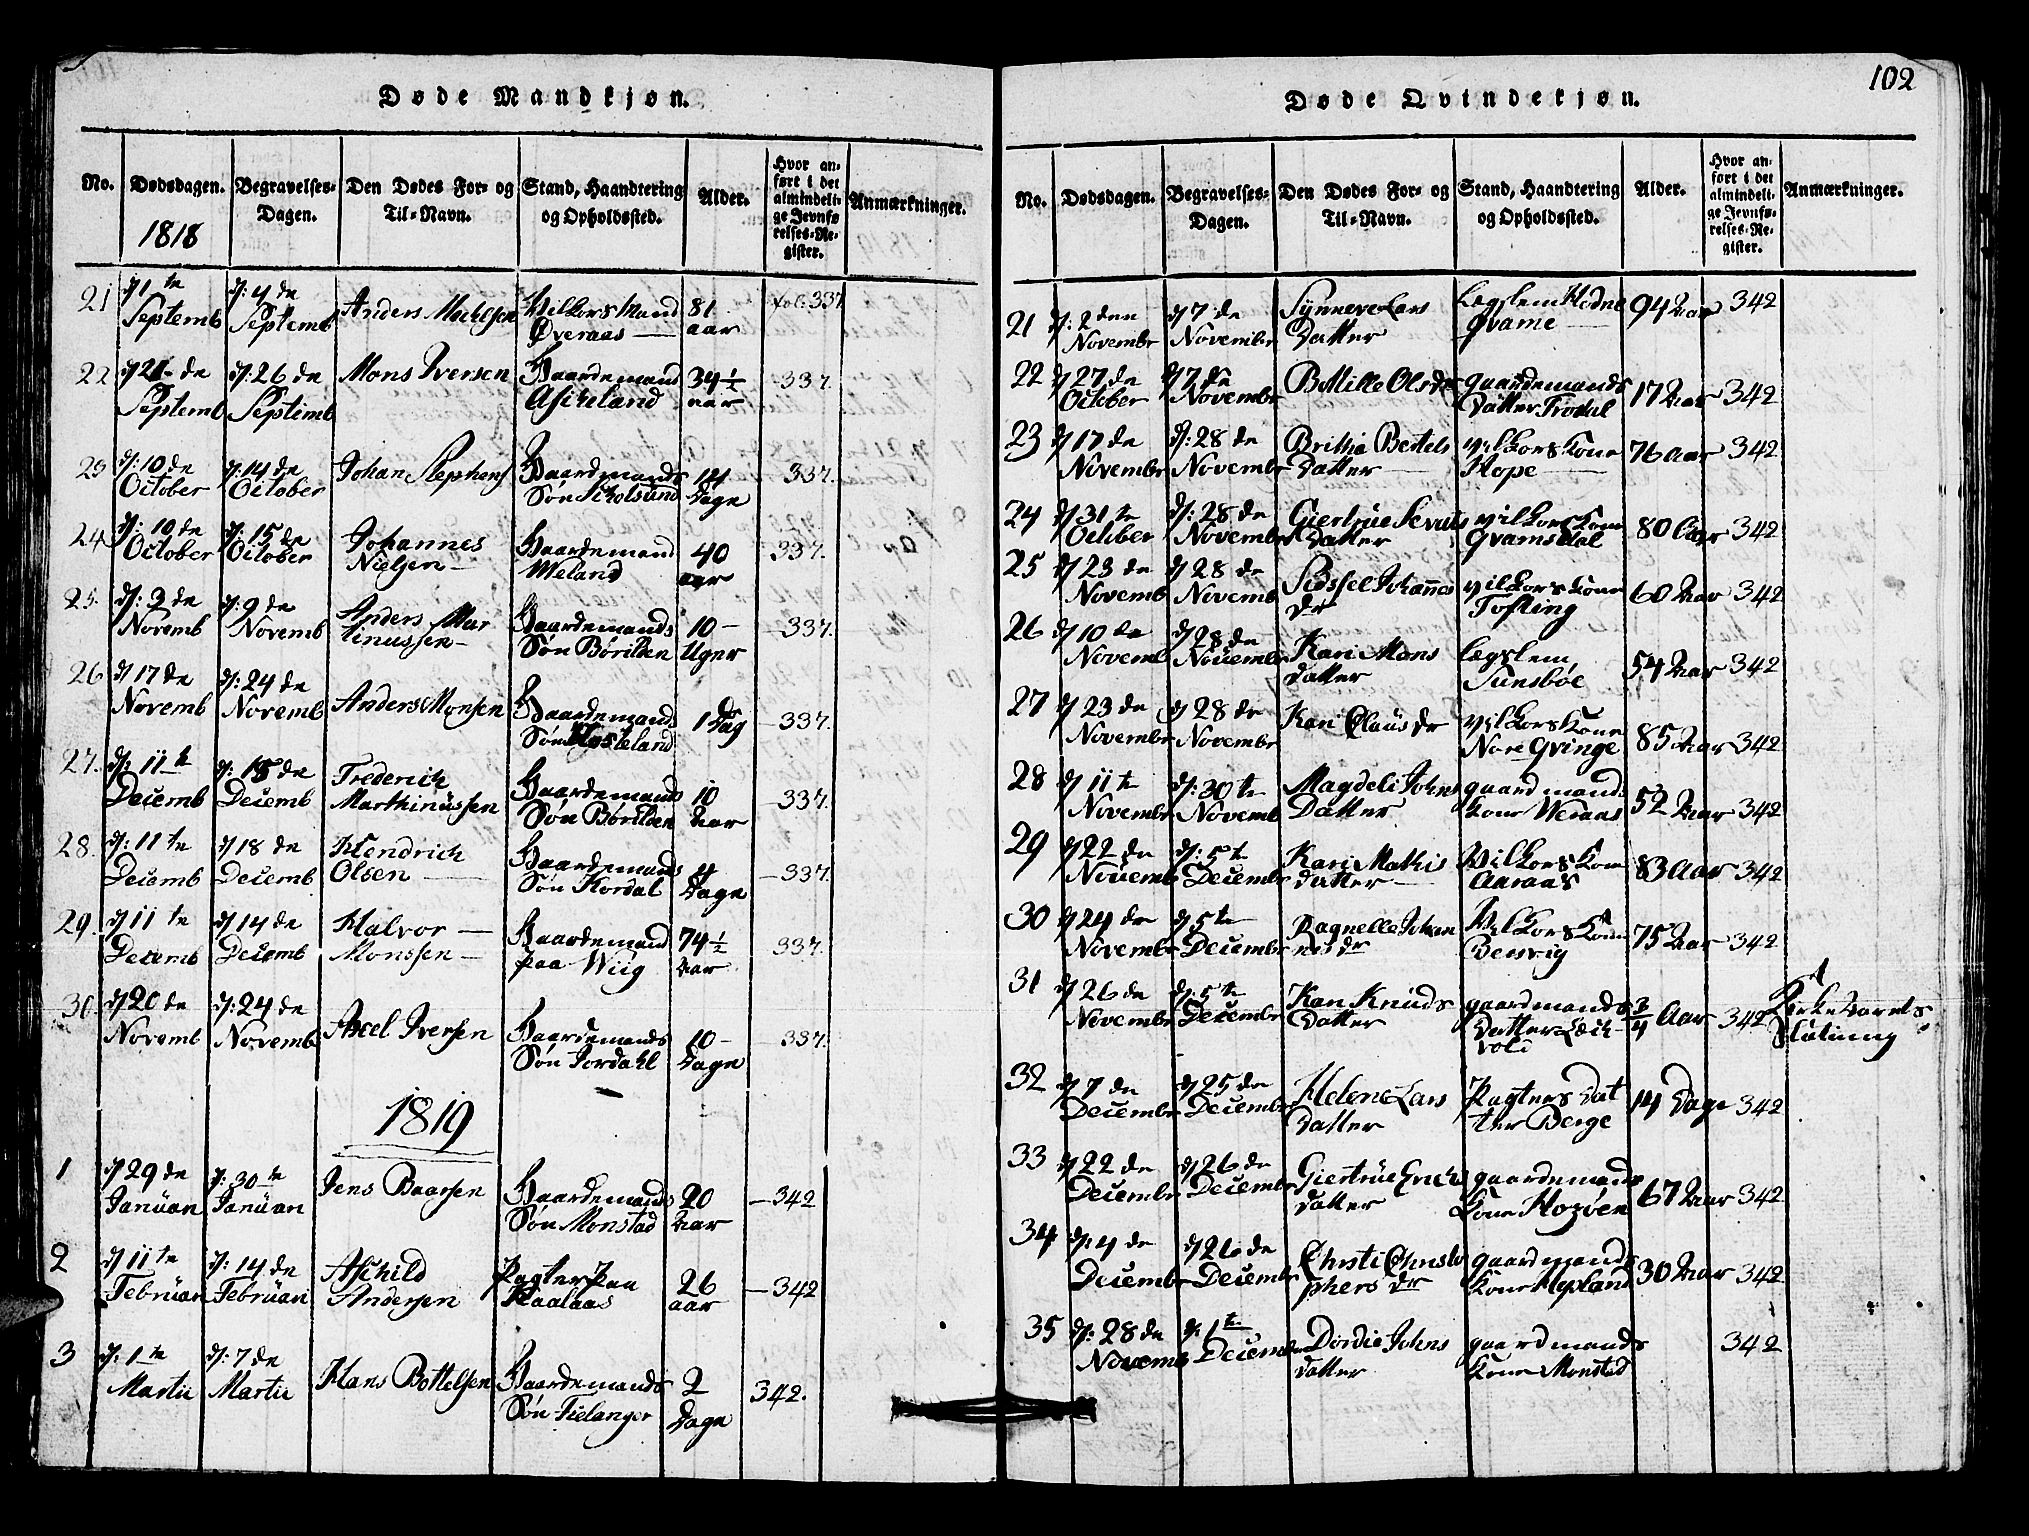 102
Døde Mandkjøn.
No. Dødsdagen. Begravelses-Dagen. Den Dødes For- og Til-Navn. Stand, Haandtering og Opholdssted. Alder. Hvor anført i det almindelige Jevnførelses-Register. Anmærkninger.
1818
21 d 1te Septemb d: 4 de Septemb Anders Wilkors Mand Øveraas 81 aar fol: 337
22 de Septemb d: 26 de Septemb Mons Iversen Gaardemand 34 1/2 aar 337.
23 d: 10 de October d: 14 de October Johan Stephens Gaardmands Søn 14 Dage 337.
24 d: 10 de October d: 15 de October Johannes Nielsen Gaardemand Weland 40 aar 337.
25. d: 3 de Novemb d: 9 de Novemb Anders Martinussen Gaardemands Søn Børilden 10 Uger 337.
26 d 17 de Novemb d: 24 de Novemb Anders Monsen Gaardemands Søn 1 Dag 337.
27. d: 11te Decemb d: 18 de Decemb Frederich Marthinüssen Gaardemands Søn Børilden 10 Aar 337.
28. d: 11 te Decemb d 18 de Decemb Hendrich Olsen Gaardemands Søn 4 Dage 337.
29. d 11 te Decemb d 14 de Decemb Halvor Monssen Gaardemand paa Wiig 74 1/2 Aar 337.
30. d 20 de Novemb d: 24 de Novemb Axel Iversen Gaardemands Søn Jordahl 10 Dage 337.
1819
1 d 29 de Janüari d: 30 te Janüari Jens Baarsen Gaardemands Søn Monstad 20 Aar 342
2 d 11te Februari d: 14 de Februari Aschild Andersen Pagter paa 26 aar 342
3 d: 1te Martii d: 7 de Martii Hans Bottelsen Gaardemands Søn Tielanger 2 Dage 342.
Døde Qvindekjøn.
No. Dødsdagen. Begravelses-Dagen. Den Dødes For- og Til-Navn. Stand, Haandtering og Opholdssted. Alder. Hvor anført i det almindelige Jevnførelses-Register. Anmærkninger.
21 d: 2 den Novembr d 7 de Novembr Synneve Lars Datter Lægslem Hodne Qvame 94 Aar 342
22 d 27 de October d 7 de Novembr Bottille Olsdr gaardemands Datter Trodal 17 Aar 342
23 d 17 de Novembr d: 28 de Novembr Britha Bertels Datter vilkors Kone Hope 76 aar 342
24 d 31 te October d: 28 de Novembr Giertrüe Datter vilkors Kone Qvamsdal 80 Aar 342
25 d 23 de Novemb d 28 de Novemb Sidssel Johannes dr vilkors Kone Tofting 60 Aar 342
26 d 10 de Novemb d 28 de Novembr Kari Mons datter Lægslem Tunsbøe 54 Aar 342
27 d 23 de Novembr d 28 de Novembr Kari Claüs dr vilkors Kone Nore Qvinge 85 Aar 342
28 d 11te Novembr d: 30te Novemb Magdeli Johns Datter gaardmands Kone Weraas 52 Aar 342
29 d 22 de Novemb d: 5te Decembr Kari Mathis datter Wilkors Kone Aaraas 83 Aar 342
30 d 24 de Novembr d 5te Decembr Ragnelle Johannes dr Wilkors Kone 75 Aar 342
31 d 26 de Novembr d: 5te Decembr Kari Knüds Datter gaardmands Datter 3/4 Aar 342
32 d 7 de Decembr d 25 de Decembr Helene Lars Datter Pagters Datter Berge 14 Dage 342
33 d 22 de Decembr d 26 de Decembr Giertrüe Datter gaardemands Kone 67 Aar 342
34 d: 4 de Decembr d 26 de Decembr Christi Christophers dr gaardmands Kone 30 Aar 342
35 d: 28 de Novemb d: 1te Decemb Dordie Johns datter gaardmands Kone Monstad 342